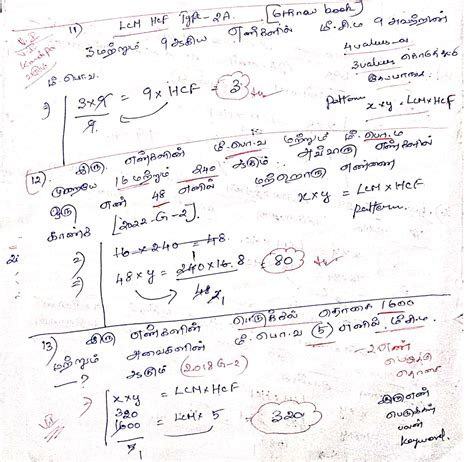 11) LCM HCF Type-2A. [6th new book]
3 மற்றும் 9 ஆகிய எண்களின் மீ.சி.ம 9 அவற்றின்
மீ.பொ.வ.
4 values
3 values
pattern
x×y = LCM×HCF
3×9 = 9×HCF = 3
9
12) இரு எண்களின் மீ.பொ.வ மற்றும் மீ.பொ.ம
முறையே 16 மற்றும் 240 ஆகும். அவ்வாறு எண்களில்
ஒரு எண் 48 எனில் மற்றொரு எண்ணை
காண்க [2022-G-2]
x×y = LCM×HCF
pattern.
16×240 = 48
48×y = 240×16 = 80
48
13) இரு எண்களின் பெருக்கல் தொகை 1600
மற்றும் அவைகளின் மீ.பொ.வ (5) எனில் மீ.சி.ம.
? ஆகும் (2018 G-2)
2 எண்
x×y = LCM×HCF
320
1600 = LCM×5 = 320
5
இரு எண்
keyword.